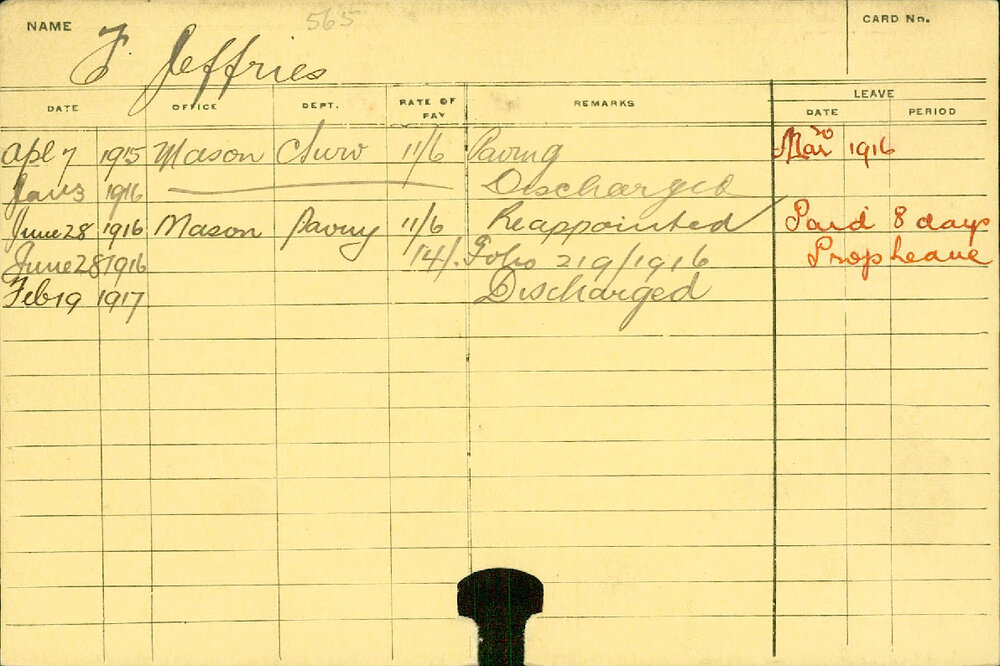 NAME F Jeffries 565 CARD No.
DATE OFFICE DEPT. RATE OF PAY REMARKS LEAVE
DATE PERIOD
Apl 7 1915 Mason Surv 11/6 Paving Mar 20 1916
Jan 3 1916 Discharged
June 28 1916 Mason Paving 11/6 Reappointed Paid 8 days
June 28 1916 14/. Folio 219/1916 Prop Leave
Feb 19 1917 Discharged